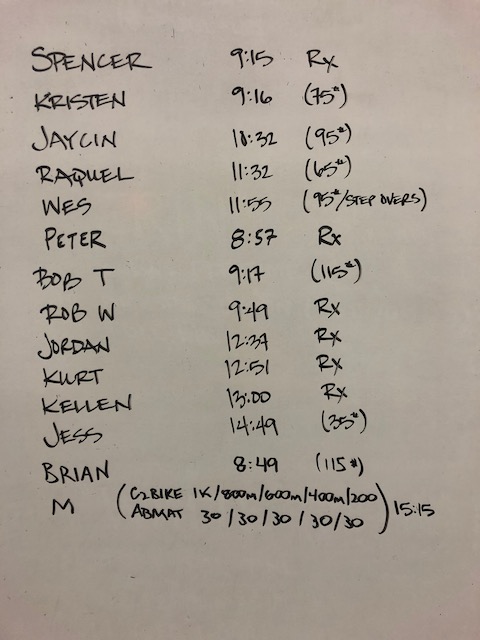 SPENCER 9:15 Rx
KRISTEN 9:16 (75#)
JAYCIN 10:32 (95#)
RAQUEL 11:32 (65#)
WES 11:55 (95#/STEP OVERS)
PETER 8:57 Rx
BOB T 9:17 (115#)
ROB W 9:49 Rx
JORDAN 12:37 Rx
KURT 12:51 Rx
KELLEN 13:00 Rx
JESS 14:49 (35#)
BRIAN 8:49 (115#)
M (C2BIKE 1K/800m/600m/400m/200
ABMAT 30/30/30/30/30) 15:15